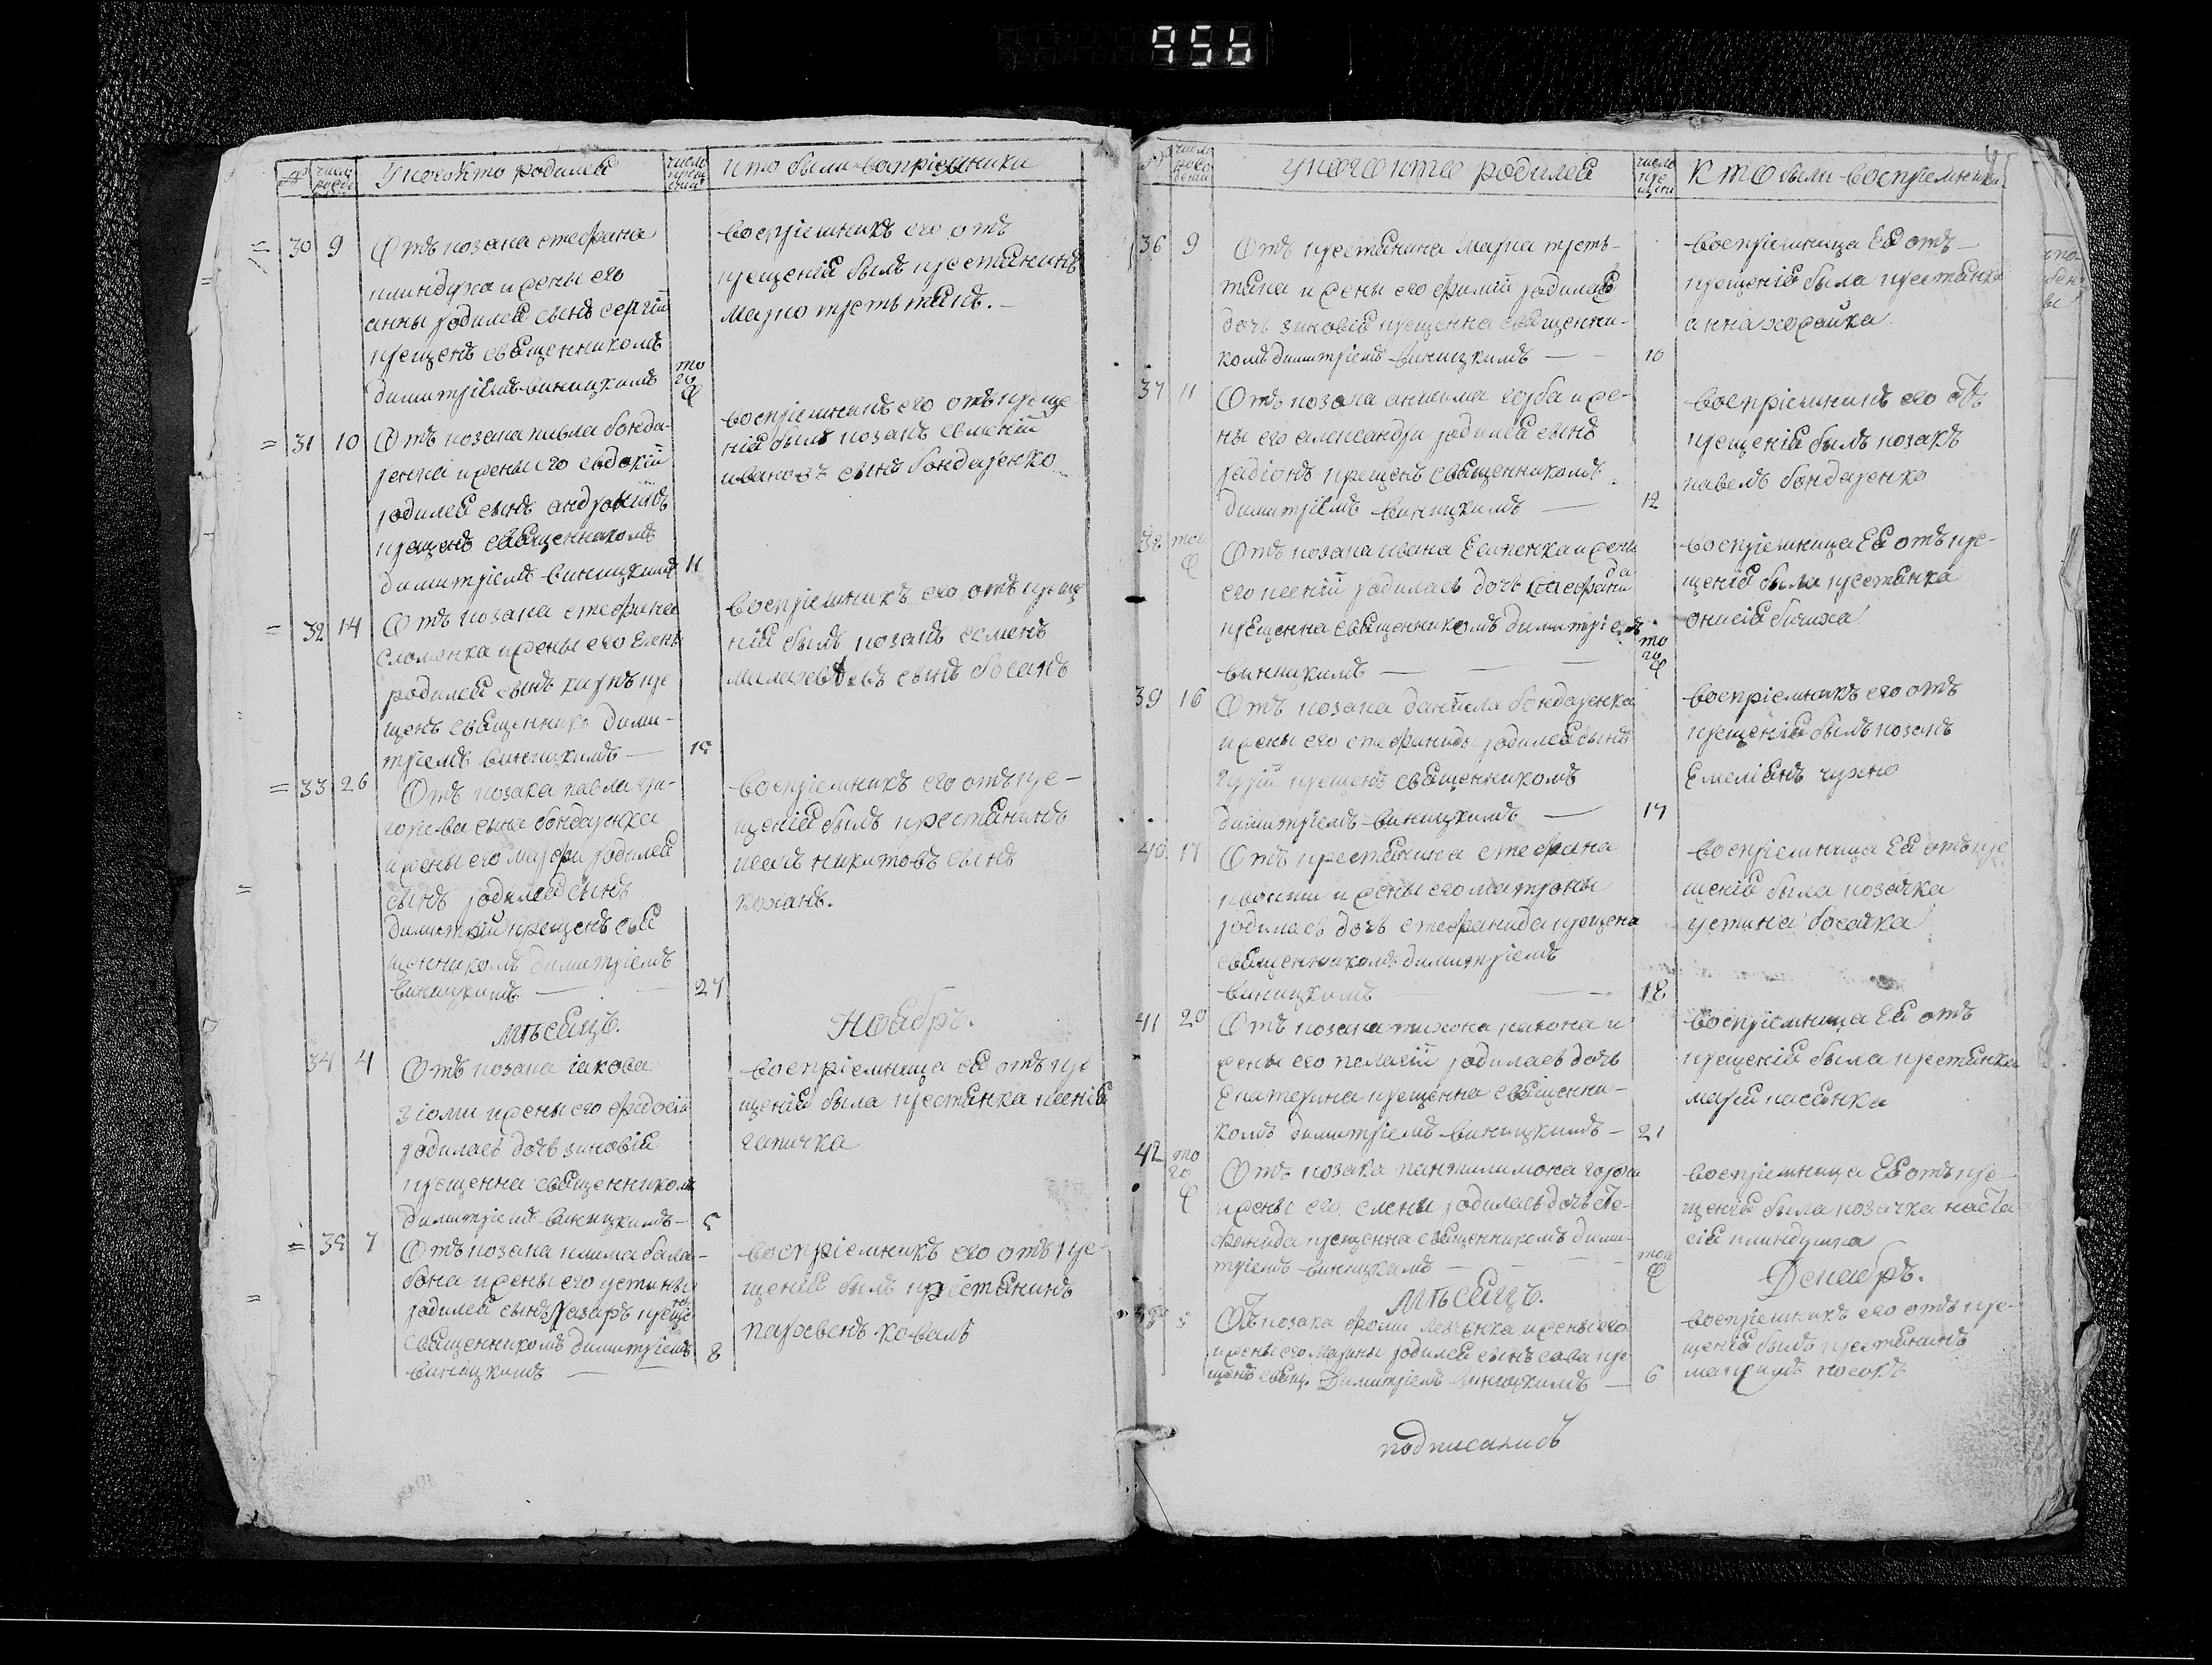 956
№ число рожде У кого кто родился число крещенія кто были восприемники
30 9 Отъ козака стефана
клиндуха и жены его
анны родился сынъ сергій
крещенъ священникомъ
димитріемъ виницкимъ того ж
восприемникъ его отъ
крещенія былъ крестянинъ
марко третьтякъ.
31 10 Отъ козака павла бонда-
ренка и жены его евдокіи
родился сынъ андроникъ
крещенъ священникомъ
димитріемъ виницкимъ 11
восприемникъ его отъ креще
нія былъ козакъ
ивановъ сынъ бондаренко
32 14 Отъ козака стефана
сломенка и жены его елены
родился сынъ карпъ кре
щенъ священнико дими-
тріемъ виницкимъ 15
восприемникъ его отъ креще
нія былъ козакъ семенъ
сынъ босакъ
33 26 Отъ козака павла гри-
горіева сына бондаренка
и жены его марфы родился
сынъ родился сынъ
димитрій крещенъ свя
щенникомъ димитріемъ
виницкимъ 27
восприемникъ его отъ кре-
щенія былъ крестянинъ
исакъ никитовъ сынъ
коханъ.
Мѣсяцъ. Ноябрь.
34 4 Отъ козака іакова
зіоми и жены его феодосіи
родилась дочь зиновія
крещенна священникомъ
димитріемъ виницкимъ 5
восприемница ея отъ кре
щенія была крестянка ксенія
гапичка
35 7 Отъ козака клима бала-
бона и жены его устины
родился сынъ лазарь крещенъ
священникомъ димитріемъ
виницкимъ 8
восприемникъ его отъ кре-
щенія былъ крестянинъ
парфенъ коваль
№ число рожденія У кого кто родился число крещени Кто были восприемники
36 9 Отъ крестянина марка треть-
тяка и жены его фимии родилась
дочь зиновія крещенна священни-
комъ димитріемъ виницкимъ 10
восприемница ея отъ
крещенія была крестянка
анна
37 11 Отъ козака анисима горба и же-
ны его александры родился сынъ
радіонъ крещенъ священникомъ
димитріемъ виницкимъ 12
восприемникъ его отъ
крещенія былъ козакъ
павелъ бондаренко
38 того ж Отъ козака ивана есипенка и жены
его ксеніи родилась дочь стефанида
крещенна священникомъ димитріемъ
виницкимъ того ж
восприемница ея отъ кре-
щенія была крестянка
онисія бичиха
39 16 Отъ козака даніила бондаренка
и жены его стефаниды родился сынъ
гурій крещенъ священникомъ
димитріемъ виницкимъ 17
восприемникъ его отъ
крещенія былъ козакъ
емеліянъ чухно
40 17 Отъ крестянина стефана
и жены его матроны
родилась дочь стефанида крещена
священникомъ димитріемъ
виницкимъ 18
восприемница ея отъ кре
щенія была козачка
устина босачка
41 20 Отъ козака тихона какона и
жены его пелагіи родилась дочь
екатерина крещенна священни-
комъ димитріемъ виницкимъ 21
восприемница ея отъ
крещенія была крестянка
марія пасѣнка
42 того ж Отъ козака пантилимона
и жены его елены родилась дочь сте-
фанида крещенна священникомъ дими-
тріемъ виницкимъ того ж
восприемница ея отъ кре-
щенія была козачка наста
сія клиндушка
Мѣсяцъ. Декабрь.
5 Отъ козака фомы левченка и жены его
и жены его марины родился сынъ сава кре
щенъ свящ. Димитріемъ виницкимъ 6
восприемникъ его отъ кре-
щенія былъ крестянинъ
максимъ носокъ
подписались